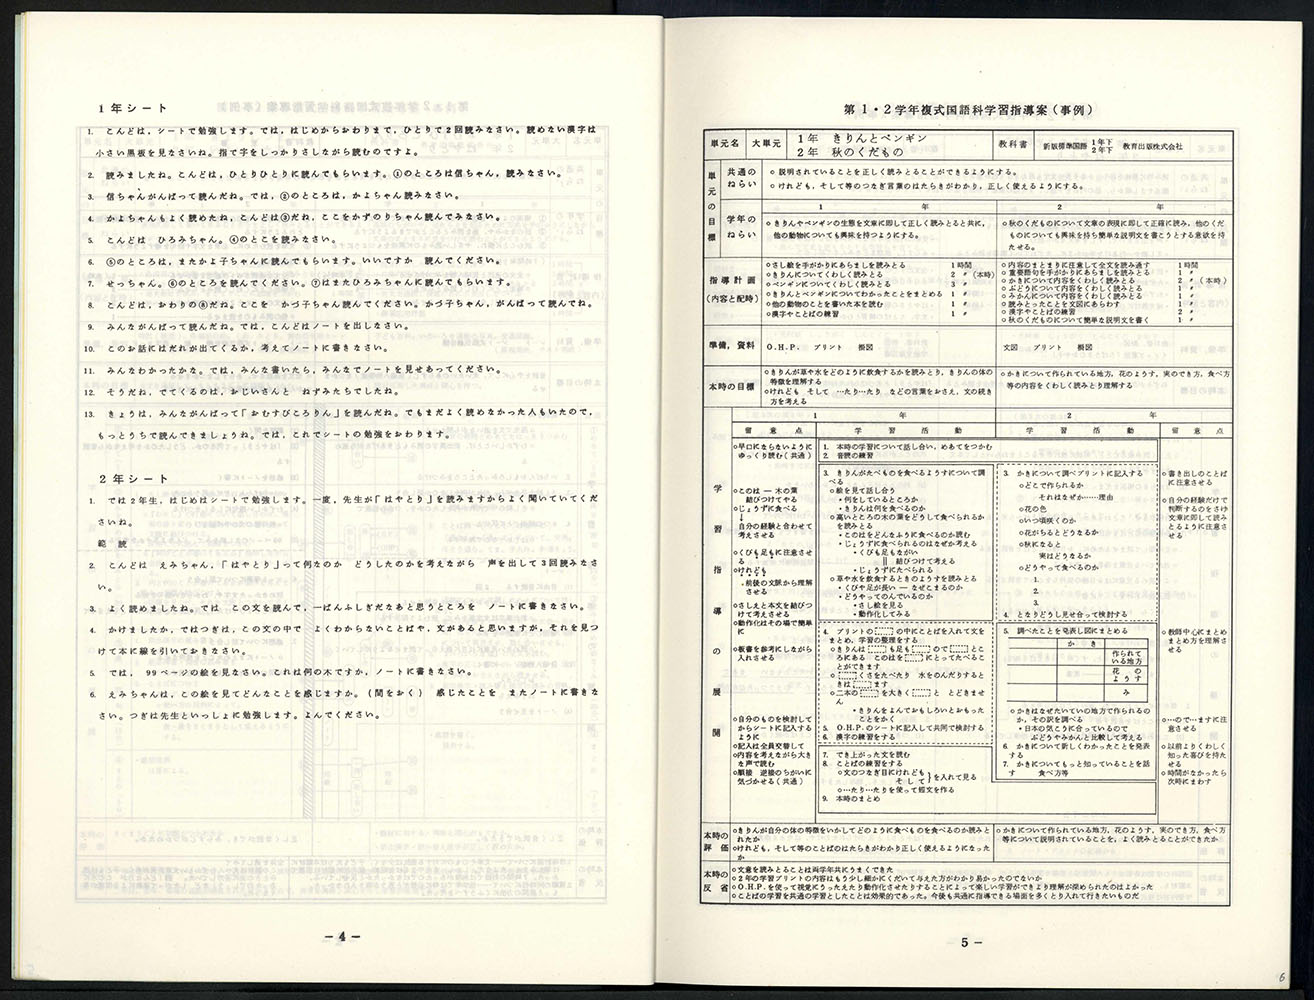 1年シート
1. こんどは，シートで勉強します。では，はじめからおわりまで，ひとりで2回読みなさい。読めない漢字は
小さい黒板を見なさいね。指で字をしっかりさしながら読むのですよ。
2. 読みましたね。こんどは，ひとりひとりに読んでもらいます。①のところは信ちゃん，読みなさい。
3. 信ちゃんがんばって読んだね。では，②のところは，かよちゃん読みなさい。
4. かよちゃんもよく読めたね，こんどは③だね，ここをかずのりちゃん読んでみなさい。
5. こんどは　ひろみちゃん。④のとこを読みなさい。
6. ⑤のところは，またかよ子ちゃんに読んでもらいます。いいですか　読んでください。
7. せっちゃん。⑥のところを読んでください。⑦はまたひろみちゃんに読んでもらいます。
8. こんどは，おわりの⑧だね。ここを　かづ子ちゃん読んでください。かづ子ちゃん，がんばって読んでね。
9. みんながんばって読んだね。では，こんどはノートを出しなさい。
10. このお話にはだれが出てくるか，考えてノートに書きなさい。
11. みんなわかったかな。では，みんな書いたら，みんなでノートを見せあってください。
12. そうだね，でてくるのは，おじいさんと　ねずみたちでしたね。
13. きょうは，みんながんばって「おむすびころりん」を読んだね。でもまだよく読めなかった人もいたので，
もっとうちで読んできましょうね。では，これでシートの勉強をおわります。
2年シート
1. では2年生，はじめはシートで勉強します。一度，先生が「はやとり」を読みますからよく聞いていてくだ
さいね。
範　読
2. こんどは　えみちゃん，「はやとり」って何なのか　どうしたのかを考えながら　声を出して3回読みなさ
い。
3. よく読めましたね。では　この文を読んで，一ばんふしぎだなあと思うところを　ノートに書きなさい。
4. かけましたか，ではつぎは，この文の中で　よくわからないことばや，文があると思いますが，それを見つ
けて本に線を引いておきなさい。
5. では，99ページの絵を見なさい。これは何の木ですか，ノートに書きなさい。
6. えみちゃんは，この絵を見てどんなことを感じますか。（間をおく）　感じたことを　またノートに書きな
さい。つぎは先生といっしょに勉強します。よんでください。
－4－
第1・2学年複式国語科学習指導案（事例）
単元名　大単元　1年　きりんとペンギン
2年　秋のくだもの
教科書　新版標準国語　1年下
2年下　教育出版株式会社
単元の目標
共通のねらい
○説明されていることを正しく読みとることができるようにする。
○けれども，そして等のつなぎ言葉のはたらきがわかり，正しく使えるようにする。
学年のねらい
1　年
○きりんやペンギンの生態を文章に即して正しく読みとると共に，
他の動物についても興味を持つようにする。
2　年
○秋のくだものについて文章の表現に即して正確に読み，他のくだ
ものについても興味を持ち簡単な説明文を書こうとする意欲を持
たせる。
指導計画
（内容と配時）
○さし絵を手がかりにあらましを読みとる　1時間
○きりんについてくわしく読みとる　2〃（本時）
○ペンギンについてくわしく読みとる　3〃
○きりんとペンギンについてわかったことをまとめる　1〃
○他の動物のことを書いた本を読む　1〃
○漢字やことばの練習　1〃
○内容のまとまりに注意して全文を読み通す　1時間
○重要語句を手がかりにあらましを読みとる　1〃
○かきについて内容をくわしく読みとる　2〃（本時）
○ぶどうについて内容をくわしく読みとる　1〃
○みかんについて内容をくわしく読みとる　1〃
○読みとったことを文図にあらわす　1〃
○漢字やことばの練習　2〃
○秋のくだものについて簡単な説明文を書く　1〃
準備，資料
O.H.P.　プリント　掛図
文図　プリント　掛図
本時の目標
○きりんが草や水をどのように飲食するかを読みとり，きりんの体の
特徴を理解する
○けれども　そして　…たり…たり　などの言葉をおさえ，文の続き
方を考える
○かきについて作られている地方，花のようす，実のでき方，食べ方
等の内容をくわしく読みとり理解する
学習指導の展開
1　年
留意点　学習活動
2　年
学習活動　留意点
○早口にならないように
ゆっくり読む（共通）
○このは ― 木の葉
結びつけてやる
○じょうずに食べる
↓
自分の経験と合わせて
考えさせる
○くびも足もに注意させ
る
○けれども
・前後の文脈から理解
させる
○さしえと本文を結びつ
けて考えさせる
○動作化はその場で簡単
に
○板書を参考にしながら
入れさせる
○自分のものを検討して
からシートに記入する
ように
○記入は全員交替して
○内容を考えながら大き
な声で読む
○順接　逆接のちがいに
気づかせる（共通）
1. 本時の学習について話し合い，めあてをつかむ
2. 音読の練習
3. きりんがたべものを食べるようすについて調
べる
○絵を見て話し合う
・何をしているところか
・きりんは何を食べるのか
○高いところの木の葉をどうして食べられるか
を読みとる
・このはをどんなふうに食べるのか読む
・じょうずに食べられるのはなぜか考える
・くびも足もながい
‖　結びつけて考える
・じょうずにたべられる
○草や水を飲食するときのようすを読みとる
・くびや足が長い ― なぜこまるのか
・どうやってのんでいるのか
・さし絵を見る
・動作化してみる
4. プリントの□の中にことばを入れて文を
まとめ，学習の整理をする
○きりんは□も足も□ので□とこ
ろにある　このはを□にとってたべるこ
とができます
○□くさをたべたり　水をのんだりすると
きは□ます
○二本の□を大きく□と　とどきませ
ん
・きりんをよんでおもしろいとおもった
ことをかく
5. O.H.P.のシートに記入して共同で検討する
6. 漢字の練習をする
7. でき上がった文を読む
8. ことばの練習をする
○文のつなぎ目にけれども
そして｝を入れて見る
○…たり…たりを使って短文を作る
9. 本時のまとめ
3. かきについて調べプリントに記入する
○どこで作られるか
それはなぜか……理由
○花の色
○いつ頃咲くのか
○花がちるとどうなるか
○秋になると
実はどうなるか
○どうやって食べるのか
1.
2.
3.
4. となりどうし見せ合って検討する
5. 調べたことを発表し図にまとめる
かき
作られて
いる地方
花の
ようす
み
○かきはなぜたいていの地方で作られるの
か，その訳を調べる
・日本の気こうに合っているので
ぶどうやみかんと比較して考える
6. かきについて新しくわかったことを発表
する
7. かきについてもっと知っていることを話
す　食べ方等
○書き出しのことば
に注意させる
○自分の経験だけで
判断するのをさけ
文章に即して読み
とるように注意さ
せる
○教師中心にまとめ
まとめ方を理解さ
せる
○…ので…ますに注
意させる
○以前よりくわしく
知った喜びを持た
せる
○時間がなかったら
次時にまわす
本時の評価
○きりんが自分の体の特徴をいかしてどのように食べものを食べるのか読みと
れたか
○けれども，そして等のことばのはたらきがわかり正しく使えるようになった
か
○かきについて作られている地方，花のようす，実のでき方，食べ方
等について説明されていることを，よく読みとることができたか
本時の反省
○文意を読みとることは両学年共にうまくできた
○2年の学習プリントの内容はもう少し細かにくだいて与えた方がわかり易かったのでないか
○O.H.P.を使って視覚にうったえたり動作化させたりすることによって楽しい学習ができより理解が深められたのはよかった
○ことばの学習を共通の学習としたことは効果的であった。今後も共通に指導できる場面を多くとり入れて行きたいものだ
5－
6